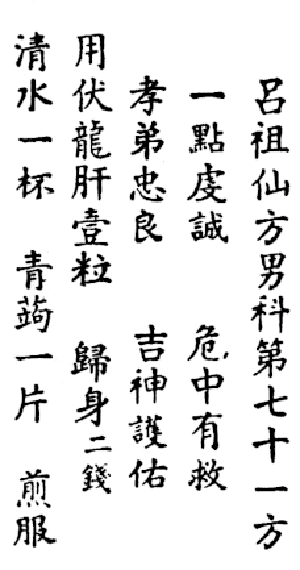 呂祖仙方男科第七十一方
一點虔誠 危中有救
孝弟忠良 吉神護佑
用伏龍肝壹粒 歸身二錢
清水一杯 青蒟一片 煎服